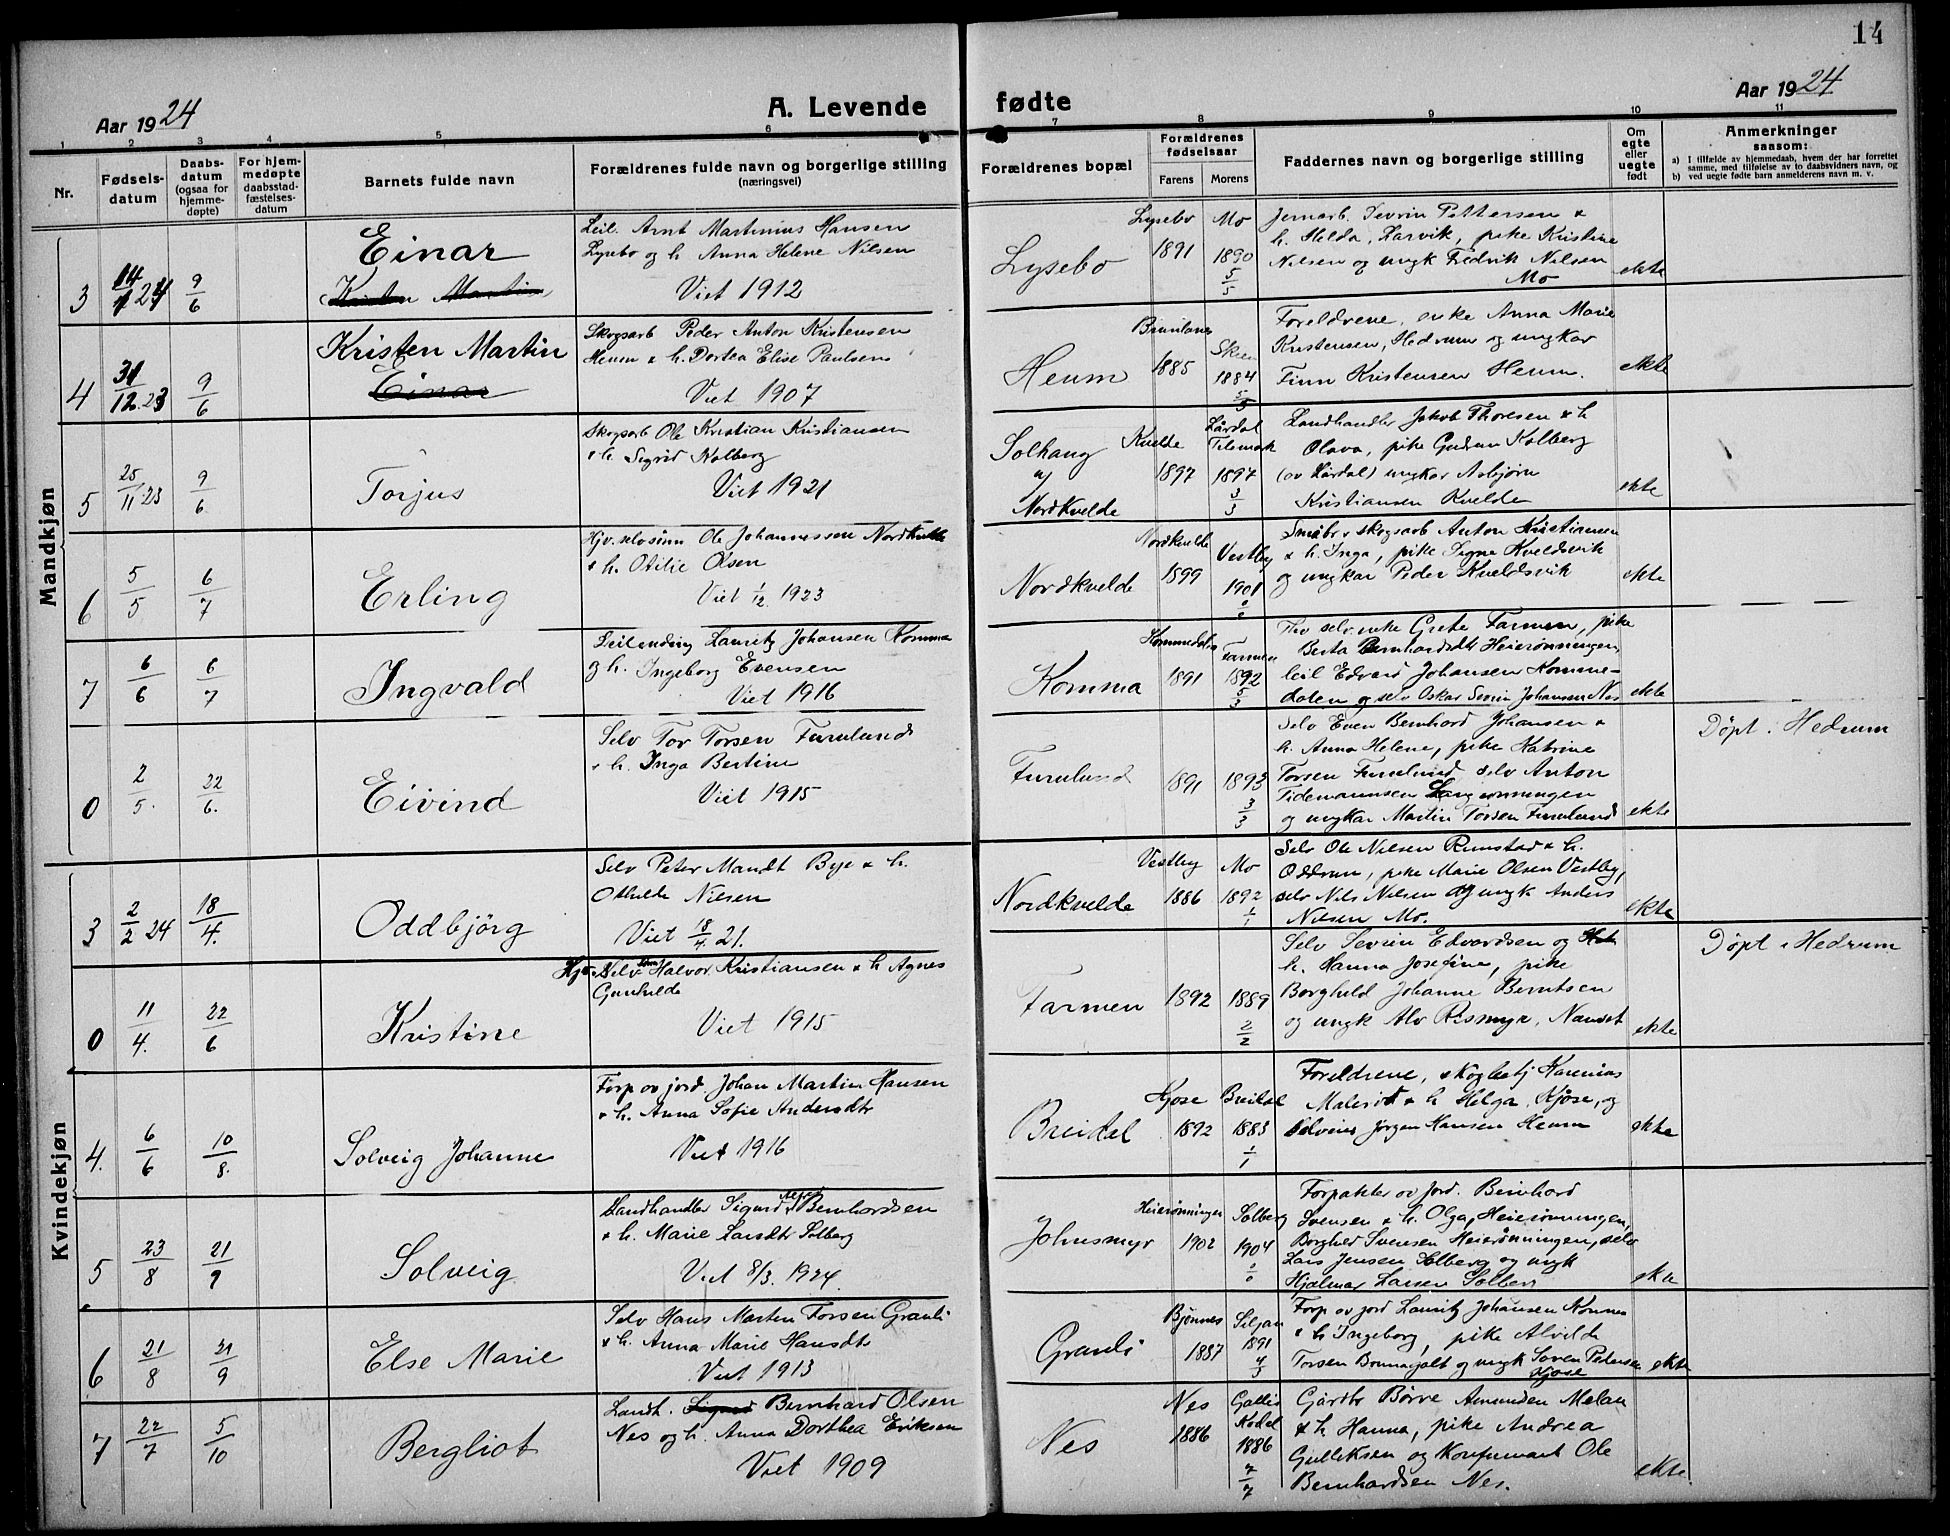 14
Aar 1924
A. Levende fødte
Aar 1924
1 2 3 4 5 6 7 8 9 10 11
Nr.
Fødsels-
datum
Daabs-
datum
(ogsaa for
hjemme-
døpte)
For hjem-
medøpte
daabsstad-
fæstelses-
datum
Barnets fulde navn
Forældrenes fulde navn og borgerlige stilling
(næringsvei)
Forældrenes bopæl
Forældrenes
fødselsaar
Farens
Morens
Faddernes navn og borgerlige stilling
Om
egte
eller
uegte
født
Anmerkninger
saasom:
a) I tilfælde av hjemmedaab, hvem der har forrettet
samme, med tilføielse av to daabsvidners navn, og
b) ved uegte fødte barn anmelderens navn m. v.
Mandkjøn
3
14/1 24
9/6
Einar
Kristen Martin
Leil. Arnt Martinius Hansen
Lysebo og h. Anna Helene Nilsen
Viet 1912
Lysebo
Lysebo
1891
Mo
1890
5/5
Jernarb. Severin Pettersen &
h. Helda, Larvik, pike Kristine
Nilsen og ungk Fredrik Nilsen
Mo
ekte
4
31/12.23
9/6
Kristen Martin
Einar
Skogsarb Peder Anton Kristensen
Heum & h. Dortea Elise Paulsen
Viet 1907
Heum
Brunlanes
1885
Skien
1884
5/3
Foreldrene, enke Anna Marie
Kristensen, Hedrum og ungkar
Finn Kristensen Heum.
ekte
5
25/11 23
9/6
Torjus
Skogsarb Ole Kristian Kristiansen
& h. Sigrid Kolberg
Viet 1921
Solhaug
u/
Nordkvelde
Kvelde
1897
Lårdal
Telemark
1897
3/3
Landhandler Jakob Thoresen & h
Olava, pike Gudrun Kolberg
(av Lårdal) ungkar Asbjørn
Kristiansen Kvelde
ekte
6
5/5
6/7
Erling
Hjv. selvsønn Ole Johannessen Nordkvelde
& h. Otilie Olsen
Viet 1/12. 1923
Nordkvelde
Nordkvelde
1899
Vestby
1901
Småbr & skogsarb Anton Kristiansen
& h. Inga, pike Signe Kveldsvik
og ungkar Peder Kveldsvik
ekte
7
6/6
6/7
Ingvald
Leilending Lauritz Johansen Komma
og h. Ingeborg Evensen
Viet 1916
Komma
Kommedalen
1891
Farmen
1892
5/3
selv. enke Grete Farmen, pike
Berta Bernhardsdtr Heierønningen,
leil Edvard Johansen Komme-
dalen og selv Oskar Severin Johansen Nes
ekte
0
2/5.
22/6.
Eivind
Selv Tor Torsen Furulund
& h. Inga Bertine
Viet 1915
Furulund
1891
1893
3/3
Selv Even Bernhard Johansen &
h. Anna Helene, pike Katrine
Torsen Furulund selv Anton
Tidemannsen Langrønningen
og ungkar Martin Torsen Furulund
ekte
Døpt i Hedrum
Kvindekjøn
3
2/2 24
18/4.
Oddbjörg
Selv Peter Mandt Bye & h.
Othilde Nilsen
Viet 18/4. 21.
Nordkvelde
Vestby
1886
Mo
1892
1/1
Selv Ole Nilsen Rimstad & h.
Oddrun, pike Marie Olsen Vestby,
selv Nils Nilsen og ungk Anders
Nilsen Mo.
ekte
0
11/4.
22/6
Kristine
Selv Halvor Kristiansen & h Agnes
Gunhilde
Viet 1915
Farmen
1892
1889
2/2
Selv Severin Edvardsen og
h. Hanna Josefine, pike
Borghild Johanne Berntsen
og ungk Alv Rismyr, Nanset
ekte
Døpt i Hedrum
4.
6/6
10/8.
Solveig Johanne
Forp av jord Johan Martin Hansen
& h. Anna Sofie Andersdtr
Viet 1916
Breidal
Kjose
1892
Breidal
1883
1/1
Foreldrene, skogbetj Karenius
Malerød & h Helga, Kjöse, og
selveier Jørgen Hansen Heum
ekte
5
23/8
21/9
Solveig
Landhandler Sigurd Alfred Bernhardsen
& h. Marie Larsdtr Solberg
Viet 8/3. 1924.
Johnsmyr
Heierønningen
1902
Solberg
1904
0/0
Forpakter av jord. Bernhard
Svensen & h. Olga, Heierønningen,
Borghild Svensen Heierønningen, selv
Lars Jensen Solberg og ungk
Hjalmar Larsen Solberg
ekte
6
21/8
21/9
Else Marie
Selv Hans Morten Torsen Granli
& h. Anna Marie Hansdtr
Viet 1913
Granli
Bjönnes
1887
Siljan
1891
4/3
Forp av jord Lauritz Johansen Komnes
& h Ingeborg, pike Alvilde
Torsen Bonnegolt og ungk Soren Pedersen
Kjose
ekte
7
22/7
5/10
Bergliot
Landh. Sigurd Bernhard Olsen
Nes og h. Anna Dorthea Eriksen
Viet 1909
Nes
Nes
1886
Gallis
Kodal
1886
7/7
Gårdbr Börre Amundsen Melau
& h Hanna, pike Andrea
Gulliksen og Konfirmant Ole
Bernhardsen Nes.
ekte